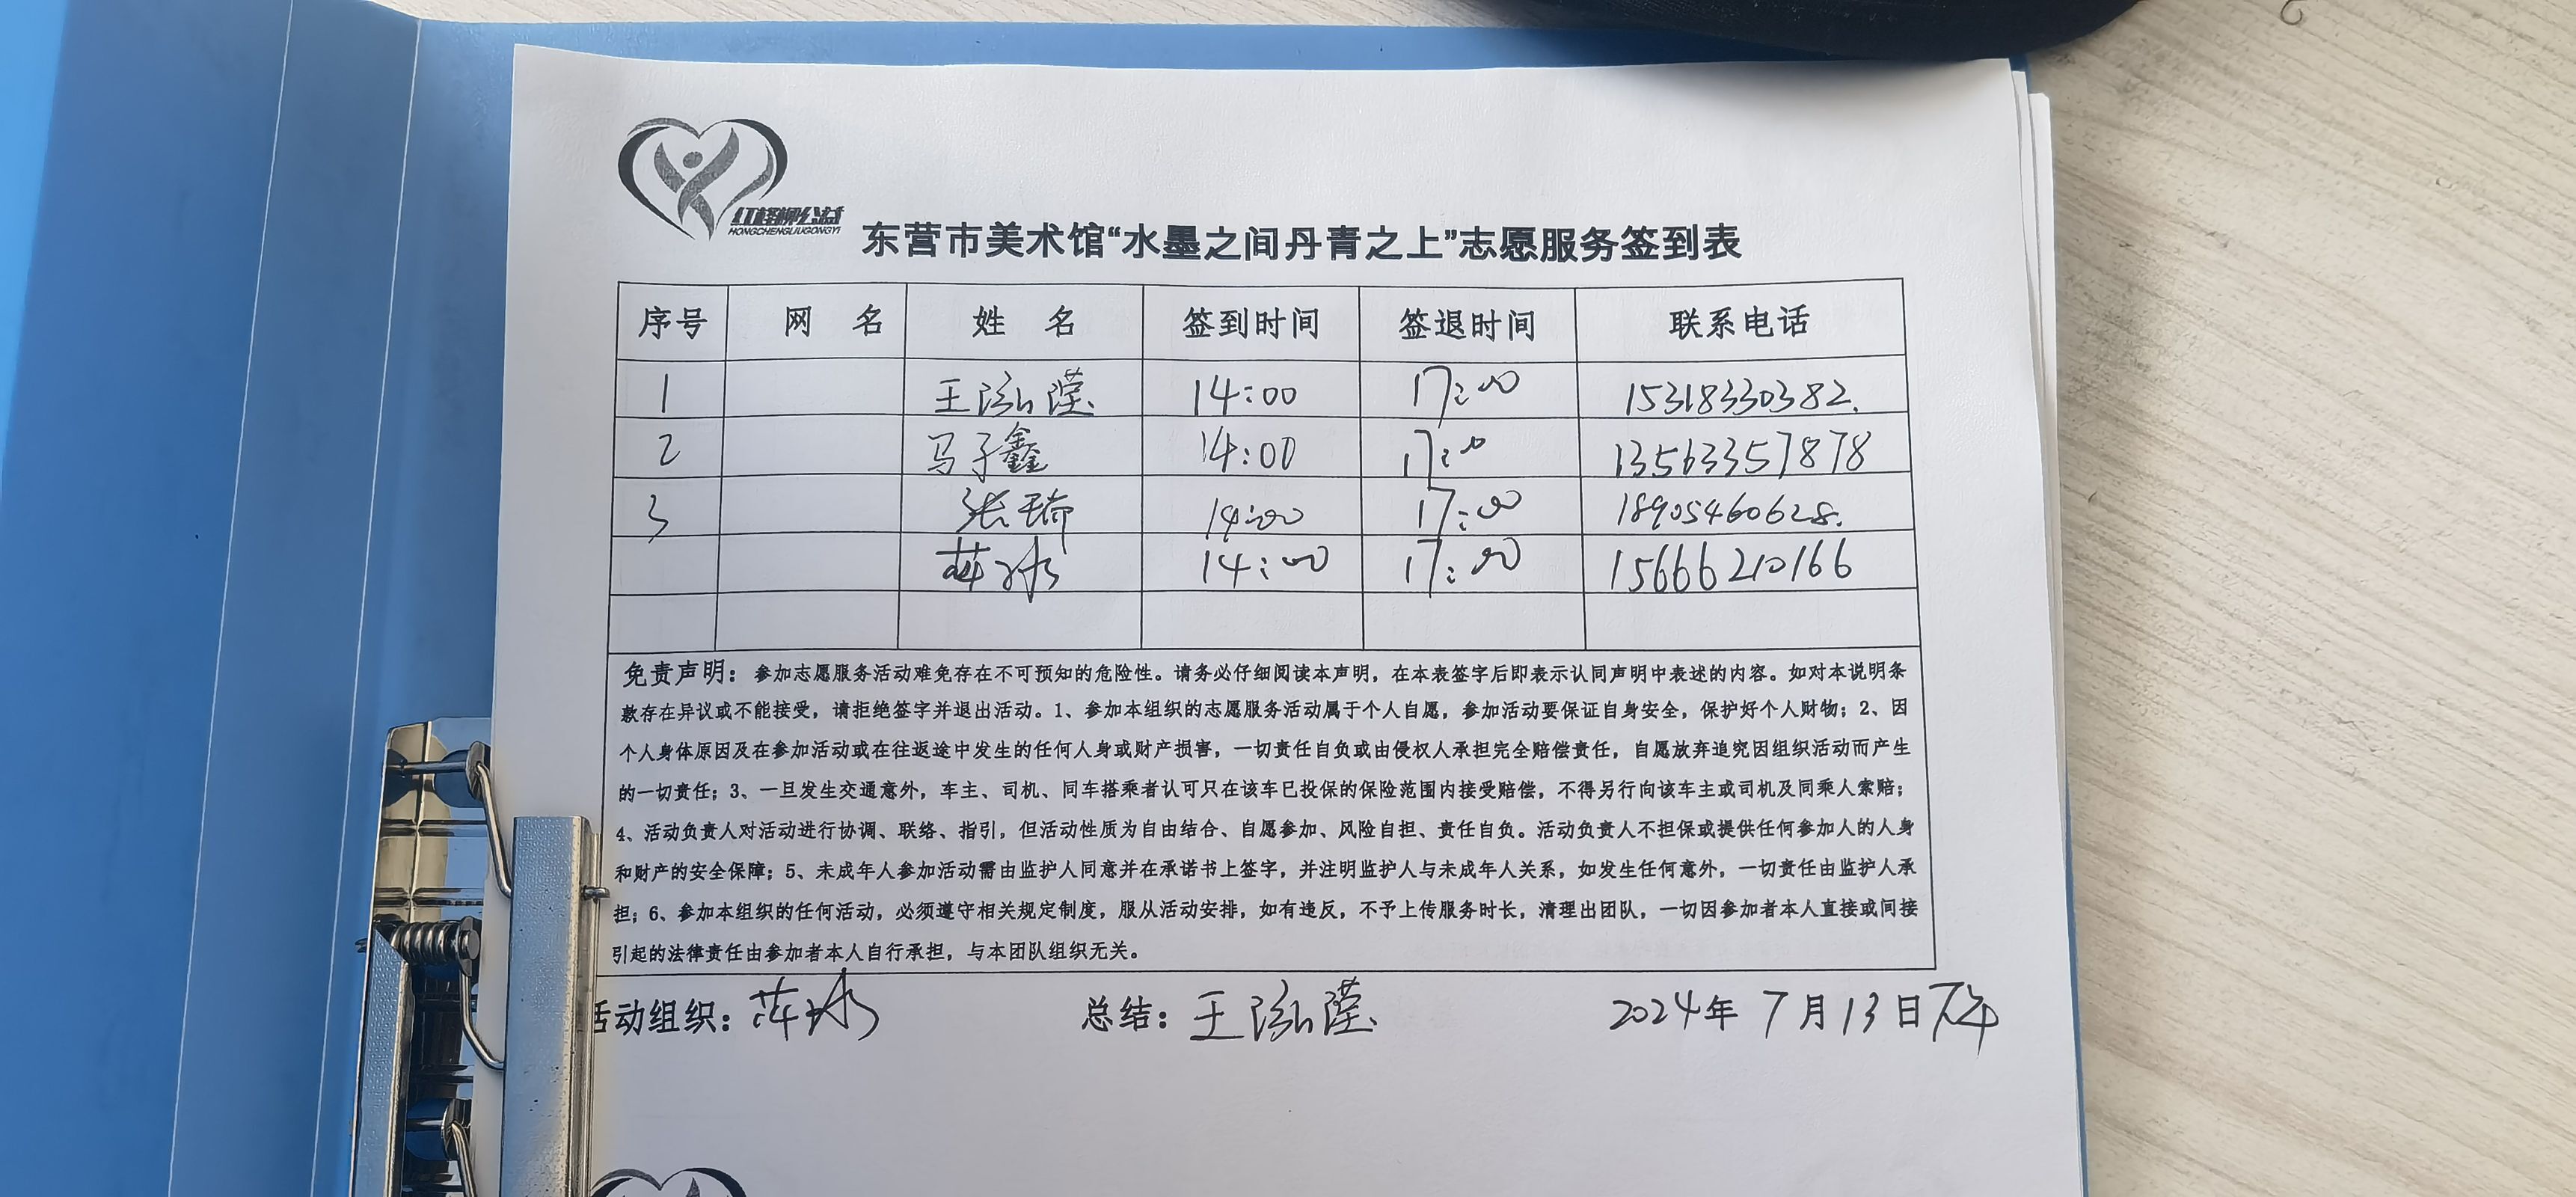 红柽柳公益
HONGCHENGLIUGONGYI
东营市美术馆“水墨之间丹青之上”志愿服务签到表
序号 网 名 姓 名 签到时间 签退时间 联系电话
1 王泓滢 14:00 17:00 15318330382.
2 马子鑫 14:00 17:00 13563357878
3 张瑜 14:00 17:00 18905460628.
14:00 17:00 15666210166
免责声明：参加志愿服务活动难免存在不可预知的危险性。请务必仔细阅读本声明，在本表签字后即表示认同声明中表述的内容。如对本说明条
款存在异议或不能接受，请拒绝签字并退出活动。1、参加本组织的志愿服务活动属于个人自愿，参加活动要保证自身安全，保护好个人财物；2、因
个人身体原因及在参加活动或在往返途中发生的任何人身或财产损害，一切责任自负或由侵权人承担完全赔偿责任，自愿放弃追究因组织活动而产生
的一切责任；3、一旦发生交通意外，车主、司机、同车搭乘者认可只在该车已投保的保险范围内接受赔偿，不得另行向该车主或司机及同乘人索赔；
4、活动负责人对活动进行协调、联络、指引，但活动性质为自由结合、自愿参加、风险自担、责任自负。活动负责人不担保或提供任何参加人的人身
和财产的安全保障；5、未成年人参加活动需由监护人同意并在承诺书上签字，并注明监护人与未成年人关系，如发生任何意外，一切责任由监护人承
担；6、参加本组织的任何活动，必须遵守相关规定制度，服从活动安排，如有违反，不予上传服务时长，清理出团队，一切因参加者本人直接或间接
引起的法律责任由参加者本人自行承担，与本团队组织无关。
活动组织： 总结：王泓滢 2024年 7月13日下午